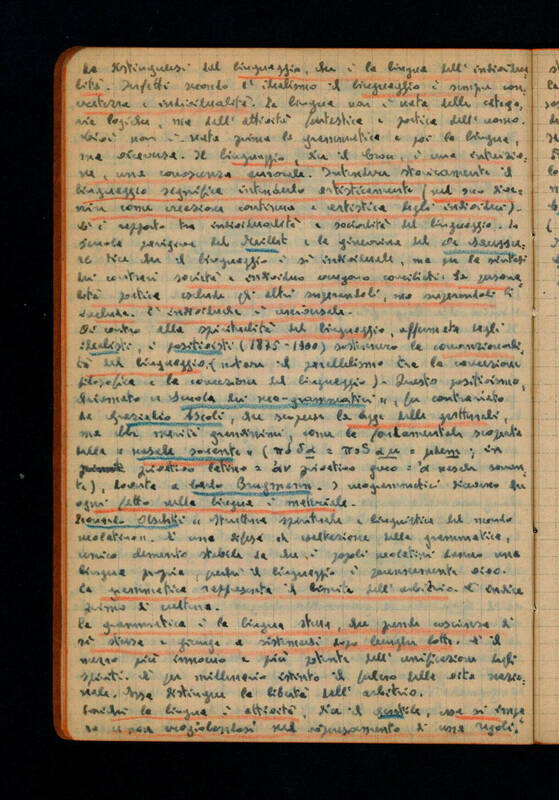 da distinguersi dal linguaggio, che è la lingua dell'individua-
lità. Infatti secondo l'idealismo il linguaggio è sempre con-
cretezza e individualità. La lingua non è nata dalle catego-
rie logiche, ma dall'attività fantastica e poetica dell'uomo.
Cioè non è nata prima la grammatica e poi la lingua,
ma viceversa. Il linguaggio, dice il Croce, è una intuizio-
ne, una conoscenza aurorale. Intendere storicamente il
linguaggio significa intenderlo artisticamente (nel suo dive-
nire come creazione continua e artistica degli individui).
C'è rapporto tra individualità e socialità del linguaggio. La
Scuola parigina del Meillet e la ginevrina del De Saussu-
re dice che il linguaggio è sì individuale, ma per la sintesi
dei contrari società e individuo vengono conciliati. La persona-
lità poetica esclude gli altri superandoli, ma superandoli li
include. È individuale e universale.
Di contro alla spiritualità del linguaggio, affermata dagli
idealisti, i positivisti (1875-1900) sostennero la convenzionali-
tà del linguaggio (notare il parallelismo tra la concezione
filosofica e la concezione del linguaggio). Questo positivismo,
chiamato "Scuola dei neo-grammatici", fu contrariato
da Graziadio Ascoli, che scoperse la legge delle gutturali,
ma ebbe meriti grandissimi, come la fondamentale scoperta
della "nasale sonante" (πόδα = πόδαμ = pedem; in
privativo latino = ἀν privativo greco = a nasale sonan-
te), dovuta a Carlo Brugmann. I neogrammatici dicevano che
ogni fatto della lingua è materiale.
"Struttura spirituale e linguistica del mondo
neolatino". È una difesa ed esaltazione della grammatica,
unico elemento stabile da che i popoli neolatini hanno una
lingua propria, perché il linguaggio è perennemente vivo.
La grammatica rappresenta il limite dell'arbitrio. È indice
primo di cultura.
La grammatica è la lingua stessa, che prende coscienza di
sé stessa e giunge a sistemarsi dopo lunghe lotte. È il
mezzo più immune e più potente dell'unificazione degli
spiriti. È per millenario istinto il fulcro della vita nazio-
nale. Essa distingue la libertà dall'arbitrio.
Poiché la lingua è attività, dice il Gentile, essa si impa-
ra non vagheggiandosi nel rispecchiamento di una regoli-